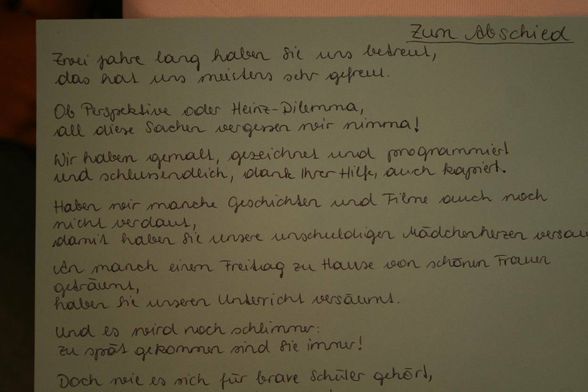 Zum Abschied
Zwei Jahre lang haben Sie uns betreut,
das hat uns meistens sehr gefreut.
Ob Perspektive oder Heinz-Dilemma,
all diese Sachen vergessen wir nimma!
Wir haben gemalt, gezeichnet und programmiert
und schlussendlich, dank Ihrer Hilfe, auch kapiert.
Haben wir manche Geschichten und Filme auch noch
nicht verdaut,
damit haben Sie unsere unschuldigen Mädchenherzen versau
An manch einem Freitag zu Hause von schönen Frauen
geträumt,
haben Sie unseren Unterricht versäumt.
Und es wird noch schlimmer:
zu spät gekommen sind Sie immer!
Doch wie es sich für brave Schüler gehört,